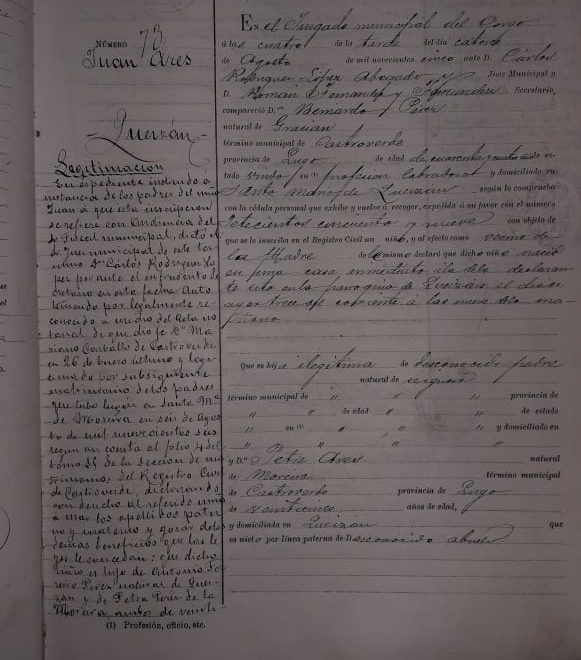 NÚMERO 73
Juan Ares
Queizán
Legitimación
En expediente instruido a
instancia de los padres del niño
Juan á que esta inscripcion
se refiere con audiencia del
Fiscal municipal, dictó el
Juez municipal de este ter
mino Dn Cárlos Rodriguez Lo
pez por ante el infrascrito Se
cretario en esta fecha Auto
teniendo por legalmente re
conocido á medio del Acta no
tarial de que dió fe Dn Ma
Carballo de Castroverde
en 26 de Enero último y legi
timado por subsiguiente
matrimonio de los padres
que tubo lugar en Santa Mª
de Moreira en seis de Agos
to de mil nuevecientos seis
segun consta al folio 4 del
tomo de la Seccion de ma
trimonios del Registro Civil
de Castroverde, declarando
con derecho al referido niño
a usar los apellidos pater
no y materno y gozar de los
demas beneficios que las le
yes le conceden: que dicho
niño es hijo de Antonio
Perez natural de Quei
zan y de Petra de la
Moreira, ambos de veinte
(1) Profesión, oficio, etc.
En el Juzgado municipal del Corgo
á las cuatro de la tarde del día catorce
de Agosto de mil novecientos cinco ante D. Cárlos
Rodriguez López Abogado y Juez Municipal y
D. Román Fernandez y Fernandez Secretario,
compareció D.n Bernardo Pérez
natural de Gracian
término municipal de Castroverde
provincia de Lugo de edad de cuarenta y es-
tado viudo en (1) profesion labrador y domiciliado en
Santa de Queizán según lo comprueba
con la cédula personal que exhibe y vuelve á recoger, expedida á su favor con el número
setecientos cincuenta y nueve con objeto de
que se le inscriba en el Registro Civil un niño, y al efecto como vecino de
la Madre del mismo declaró que dicho niño nació
en una casa inmediata a la del declaran
te sita en la parroquia de Queizán, el dia
trece del corriente á las nueve de la ma
ñana
Que es hijo ilegítimo de desconocido padre
natural de se ignora
término municipal de " " provincia de
" " de edad " " de estado
" en (1) " " y domiciliado en
" " " "
y D.ª Petra Ares natural
de Moreira término municipal
de Castroverde provincia de Lugo
de veinticinco años de edad,
y domiciliada en Queizan que
es nieto por línea paterna de Desconocido abuelo